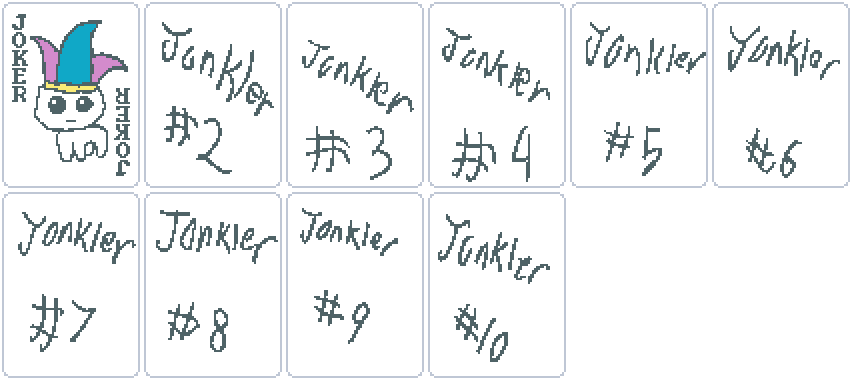 JOKER
JOKER
Jonkler
#2
Jonkler
#3
Jonkler
#4
Jonkler
#5
Jonkler
#6
Jonkler
#7
Jonkler
#8
Jonkler
#9
Jonkler
#10